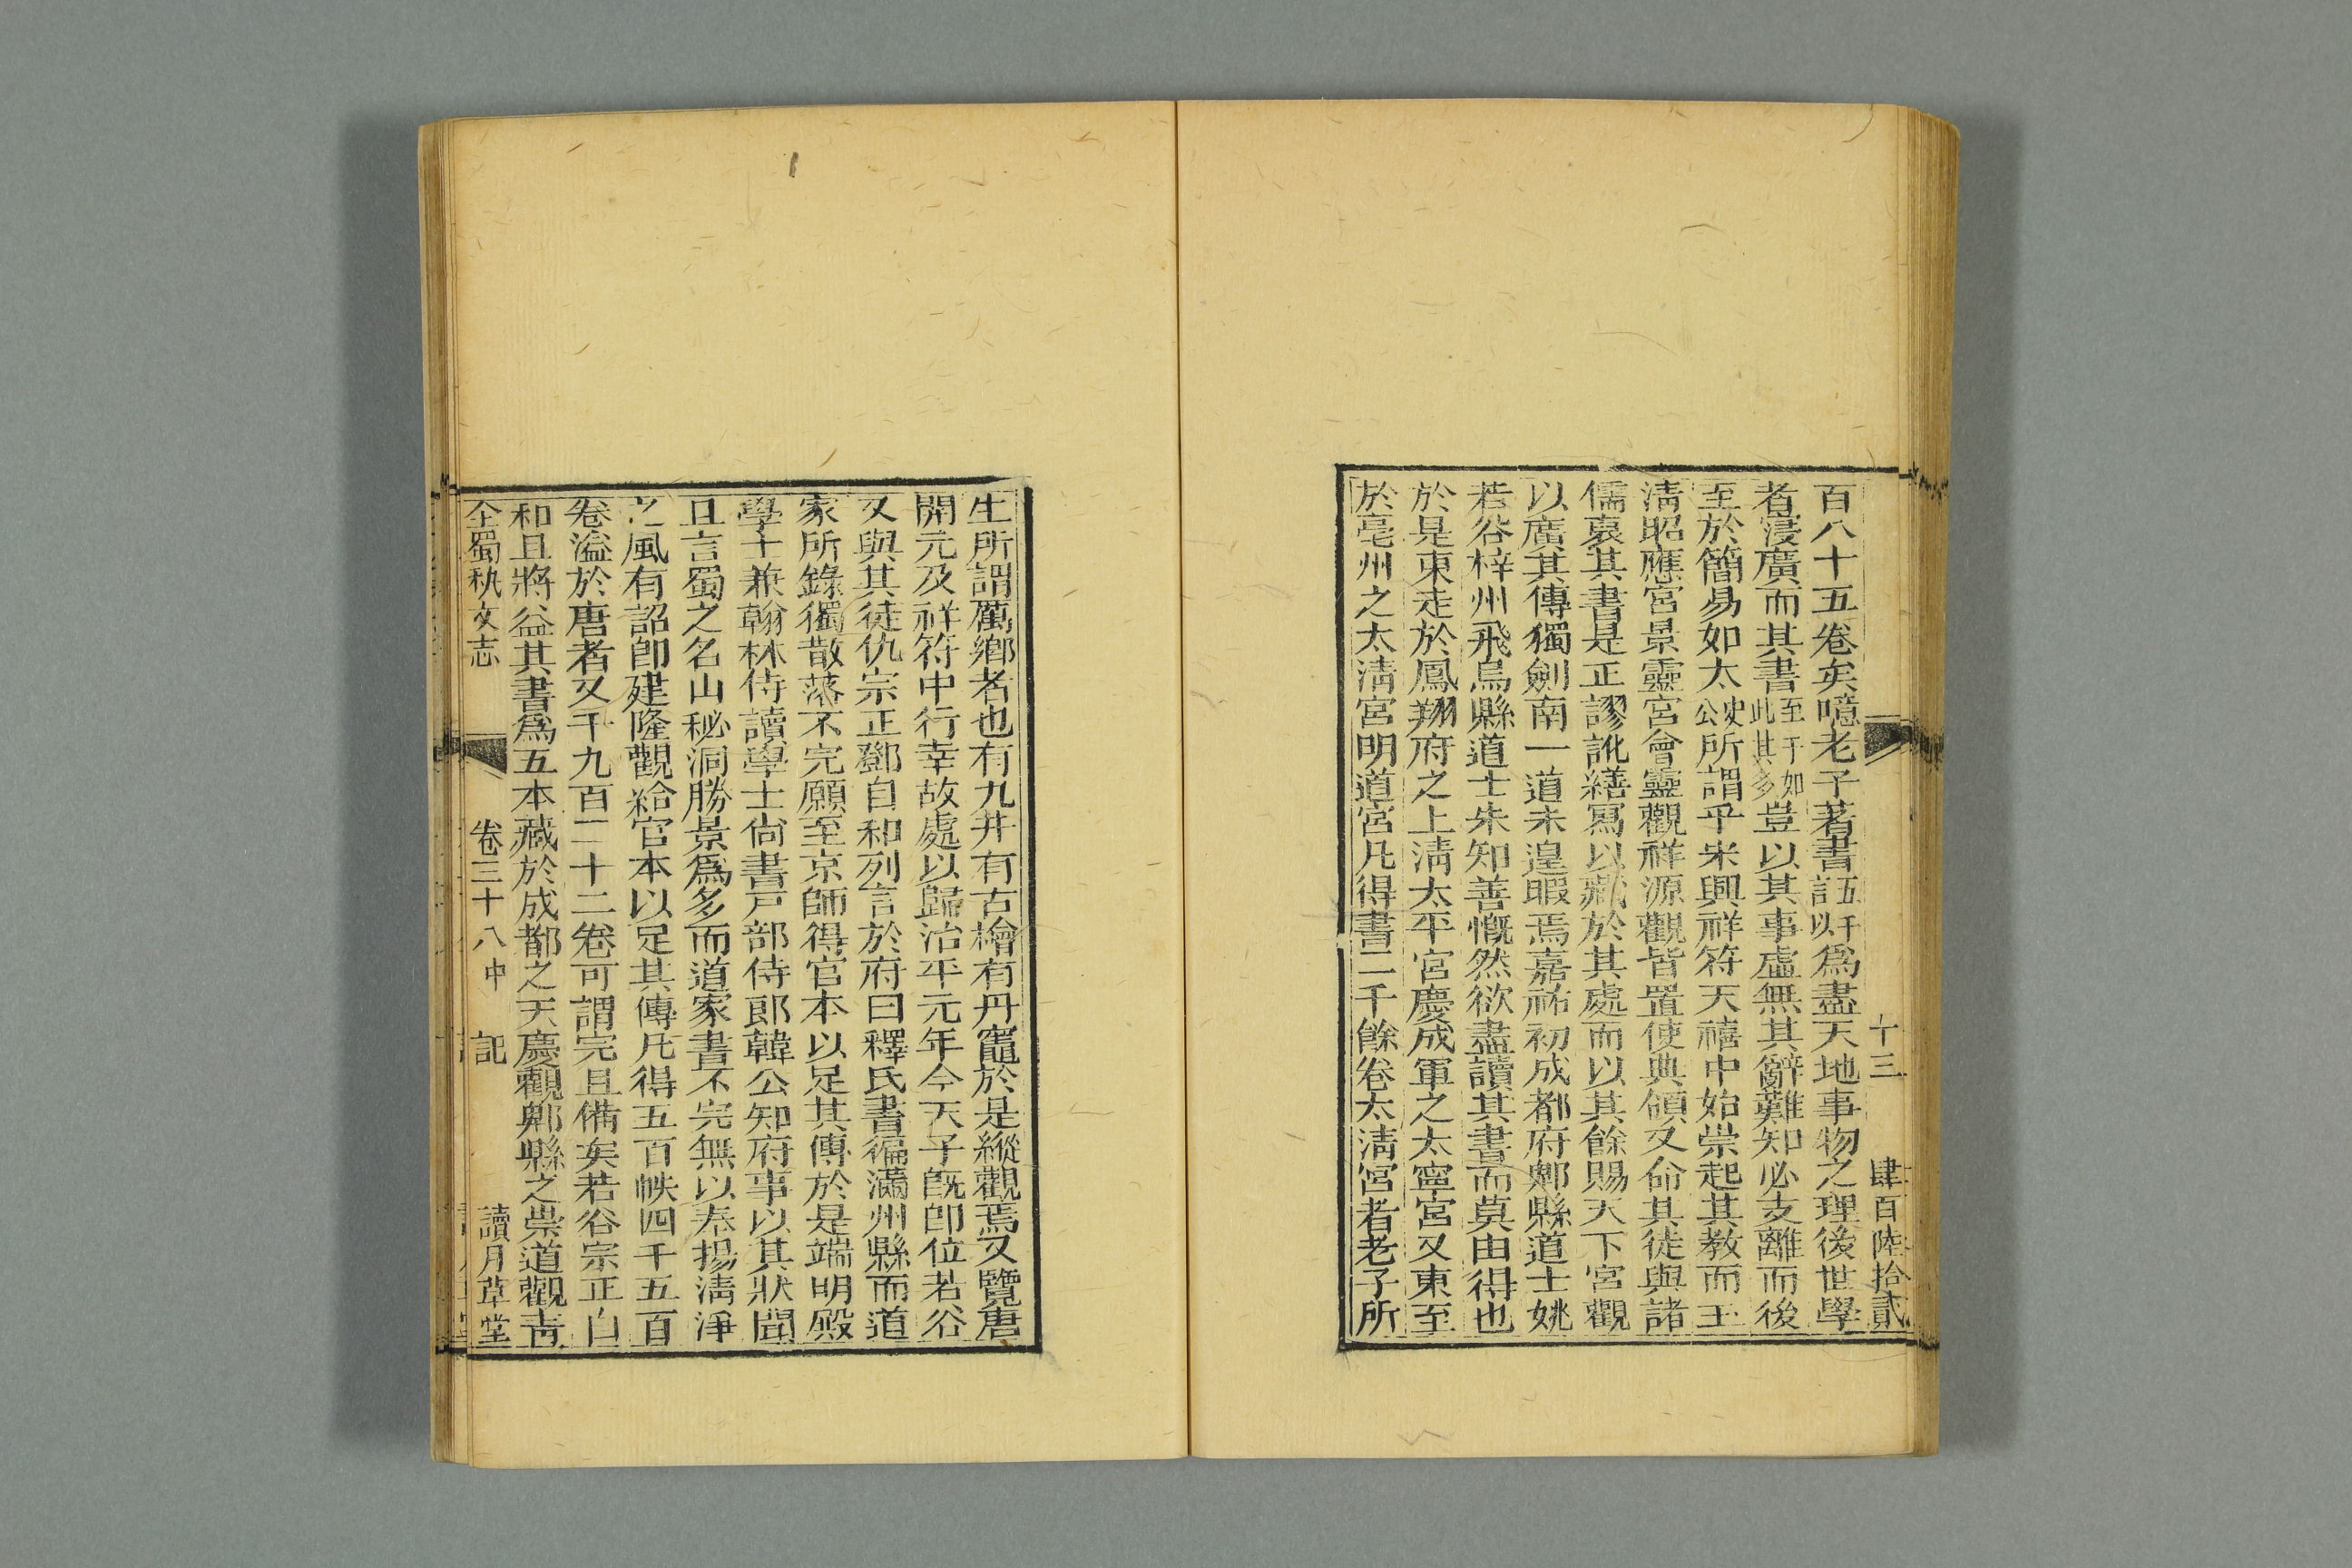 十三
肆百陸拾貳
百八十五卷矣噫老子著書五千以爲盡天地事物之理後世學
者寖廣而其書至于如此其多豈以其事虛無其辭難知必支離而後
至於簡易如太史公所謂乎宋興祥符天禧中始崇起其教而玉
淸昭應宮景靈宮會靈觀祥源觀皆置使典領又命其徒與諸
儒裒其書是正謬訛繕寫以藏於其處而以其餘賜天下宮觀
以廣其傳獨劍南一道未遑暇焉嘉祐初成都府郫縣道士姚
若谷梓州飛烏縣道士朱知善慨然欲盡讀其書而莫由得也
於是東走於鳳翔府之上淸太平宮慶成軍之太寧宮又東至
於亳州之太淸宮明道宮凡得書二千餘卷太淸宮者老子所
生所謂厲鄉者也有九井有古檜有丹竈於是縱觀焉又覽唐
開元及祥符中行幸故處以歸治平元年今天子旣卽位若谷
又與其徒仇宗正鄧自和列言於府曰釋氏書徧滿州縣而道
家所錄獨散落不完願至京師得官本以足其傳於是端明殿
學士兼翰林侍讀學士尙書戶部侍郎韓公知府事以其狀聞
且言蜀之名山秘洞勝景爲多而道家書不完無以奉揚淸淨
之風有詔卽建隆觀給官本以足其傳凡得五百帙四千五百
卷溢於唐者又千九百二十二卷可謂完且備矣若谷宗正自
和且將益其書爲五本藏於成都之天慶觀郫縣之崇道觀靑
全蜀秇文志 卷三十八中 記 讀月草堂